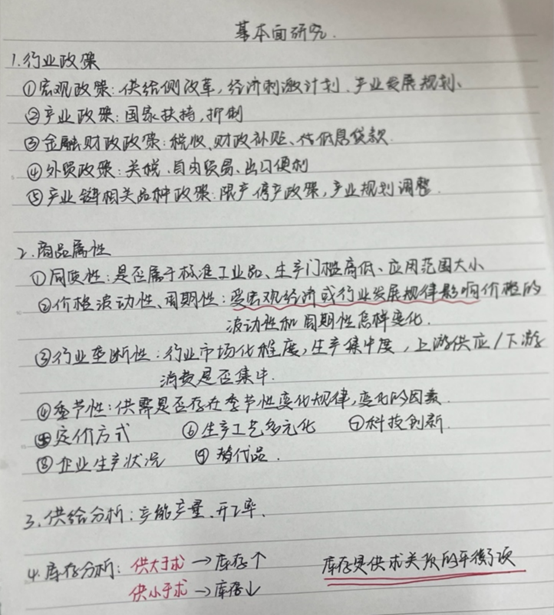 基本面研究.
1.行业政策
①宏观政策:供给侧改革,经济刺激计划.产业发展规划、
②产业政策:国家扶持,抑制
③金融财政政策:税收、财政补贴、低息贷款
④外贸政策:关税、自由贸易、出口便利
⑤产业链相关品种政策:限产停产政策,产业规划调整.
2.商品属性
①同质性:是否属于标准工业品、生产门槛高低、应用范围大小
②价格波动性、周期性:受宏观经济或行业发展规律影响价格的
波动性和周期性怎样变化.
③行业垄断性:行业市场化程度,生产集中度,上游供应/下游
消费是否集中.
④季节性:供需是否存在季节性变化规律,变化的因素.
⑤定价方式 ⑥生产工艺多元化 ⑦科技创新.
⑧企业生产状况 ⑨替代品.
3.供给分析:产能产量、开工率、
4.库存分析:供大于求→库存↑ 库存是供求关系的平衡项
供小于求→库存↓